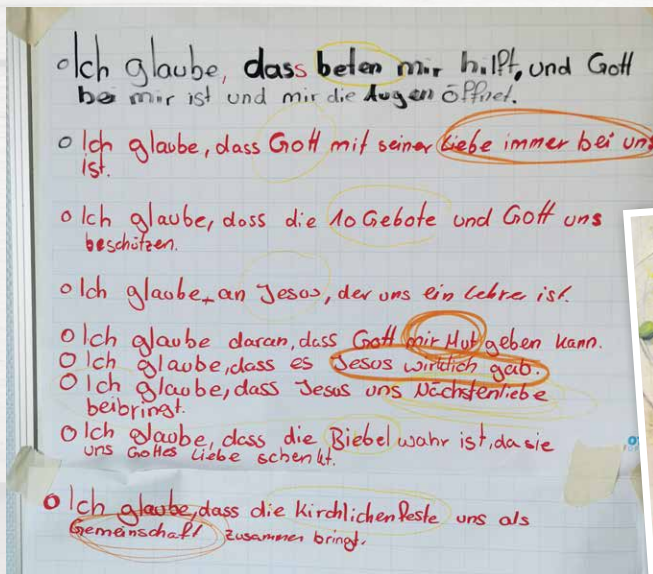 Ich glaube, dass beten mir hilft, und Gott
bei mir ist und mir die Augen öffnet.
Ich glaube, dass Gott mit seiner Liebe immer bei uns
ist.
Ich glaube, dass die 10 Gebote und Gott uns
beschützen.
Ich glaube, an Jesus, der uns ein Lehrer ist.
Ich glaube daran, dass Gott mir Mut geben kann.
Ich glaube, dass es Jesus wirklich gab.
Ich glaube, dass Jesus uns Nächstenliebe
beibringt.
Ich glaube, dass die Biebel wahr ist, da sie
uns Gottes Liebe schenkt.
Ich glaube, dass die kirchlichen Feste uns als
Gemeinschaft zusammen bringt.